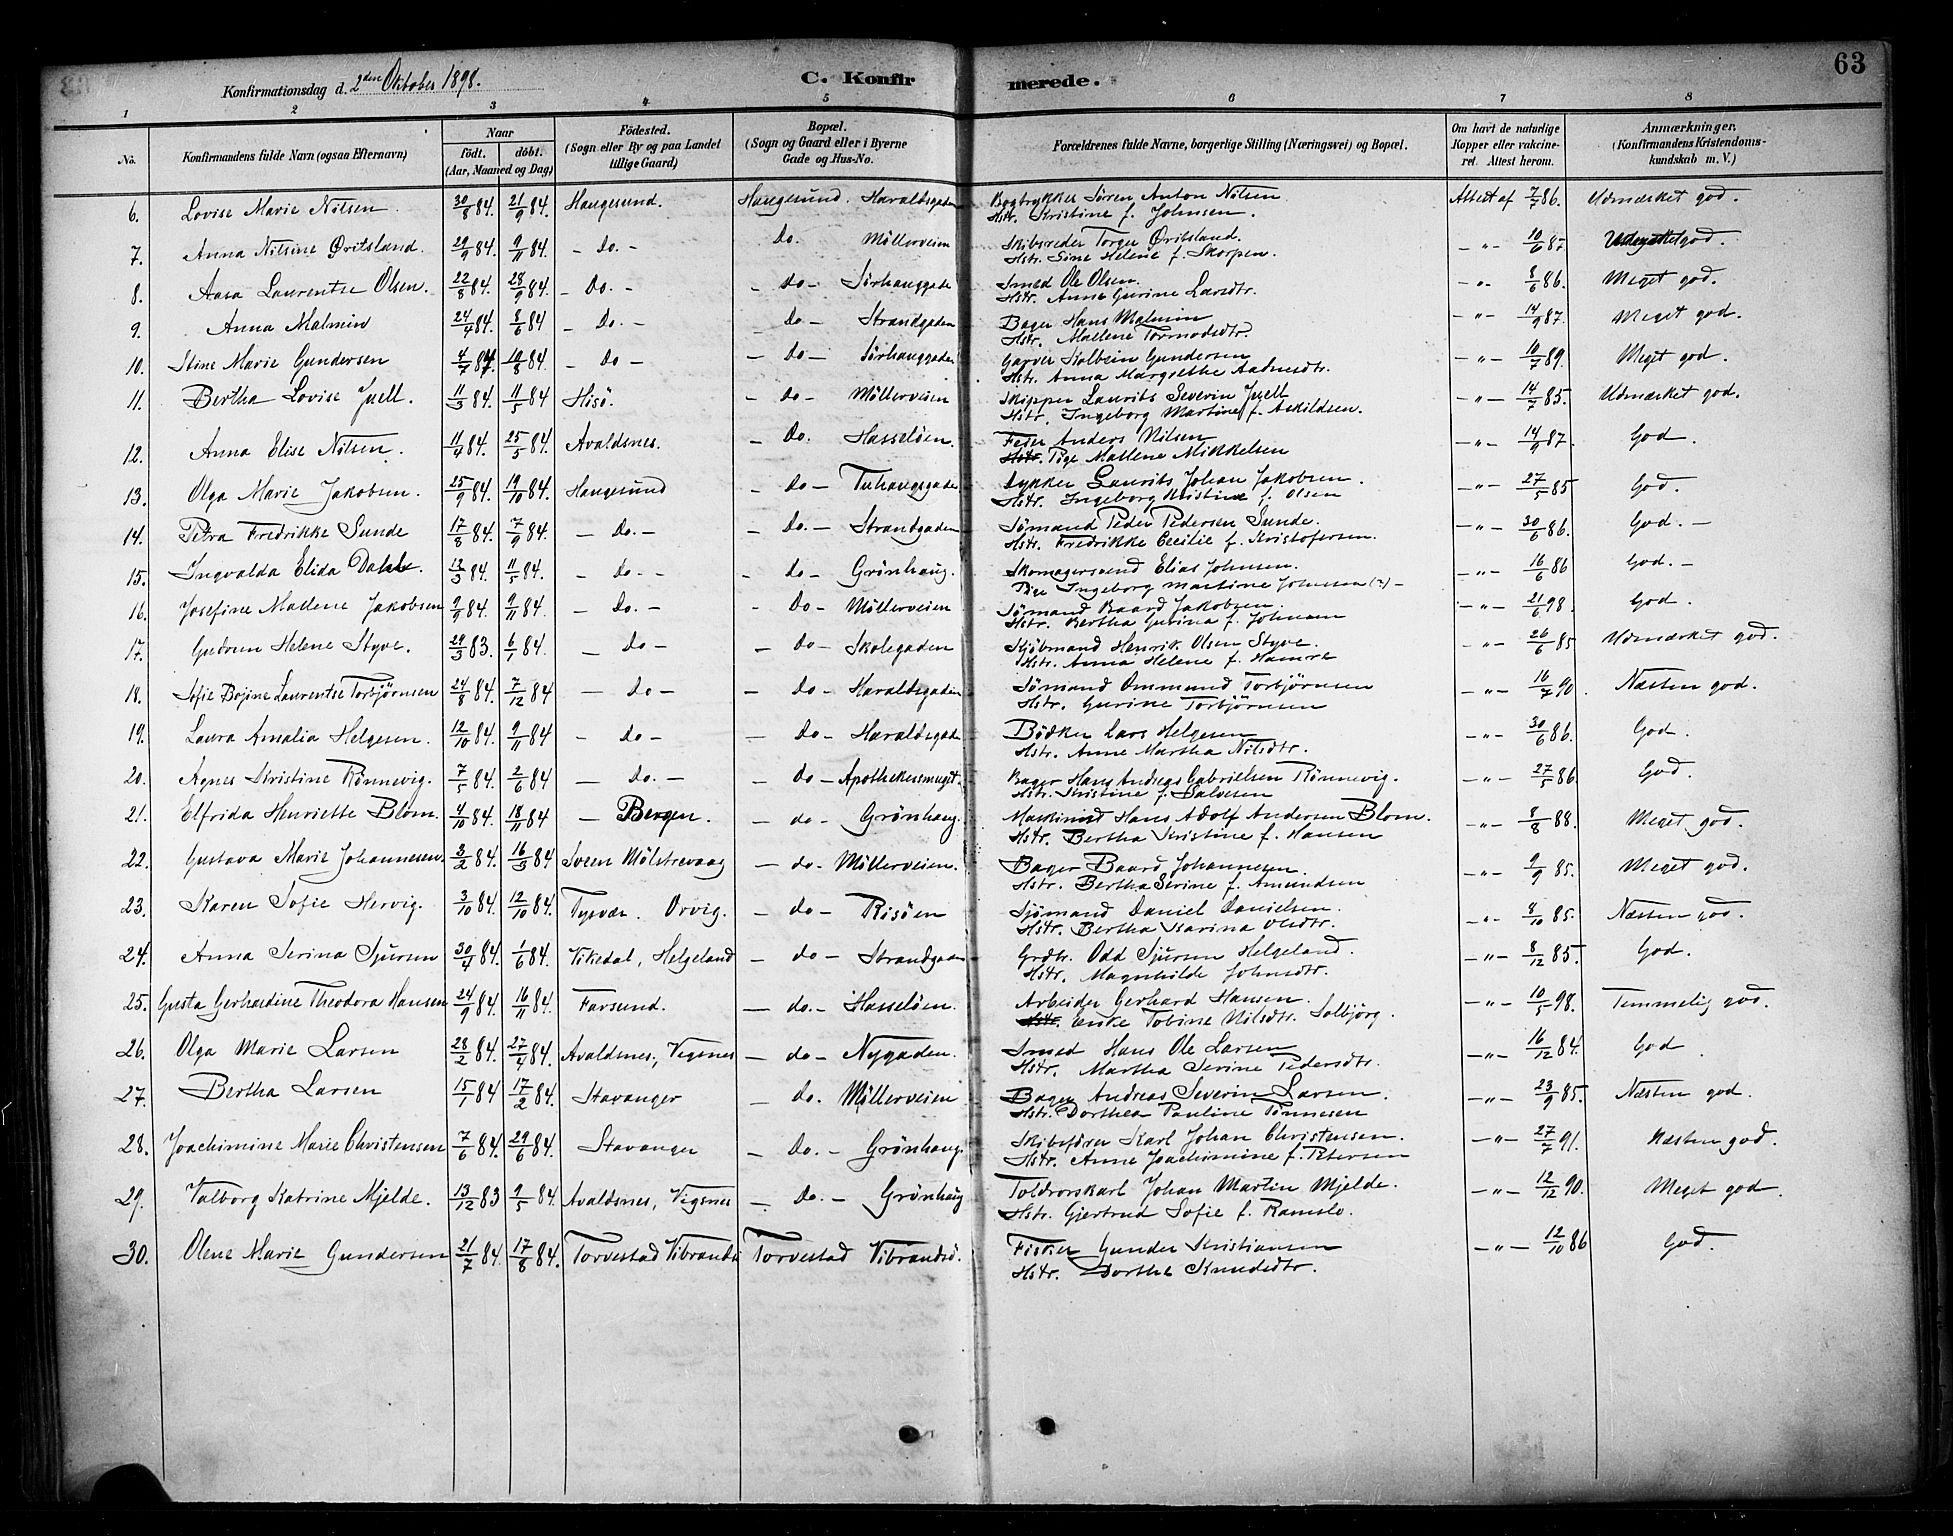 63
Konfirmationsdag d. 2den Oktober 1898.
C. Konfirmerede.
1 2 3 4 5 6 7 8
No. Konfirmandens fulde Navn (ogsaa Efternavn) Naar födt. döbt. (Aar, Maaned og Dag) Födested. (Sogn eller By og paa Landet tillige Gaard) Bopæl. (Sogn og Gaard eller i Byerne Gade og Hus-No. Forældrenes fulde Navne, borgerlige Stilling (Næringsvei) og Bopæl. Om havt de naturlige Kopper eller vakcineret. Attest herom. Anmærkninger. (Konfirmandens Kristendomskundskab m. V.)
6. Lovise Marie Nilsen. 30/8 84. 21/9 84. Haugesund. Haugesund. Haraldsgaden Bogtrykker Sören Anton Nilsen Attest af 7/7 86. Udmærket god.
Hstr. Kristine f. Johnsen.
7. Anna Nilsine Öritsland. 29/9 84. 9/11 84. - Do. - Do. Möllerveien Skibsreder Torger Öritsland. - " - 10/6 87. god.
Hstr. Sine Helene f. Skorpen.
8. Aasa Laurentse Olsen. 22/8 84. 28/9 84. - Do. - - do - Sörhauggade Smed Ole Olsen. - " - 8/6 86. Meget god.
Hstr. Anne Gurine Larsdtr.
9. Anna Malmin 24/4 84. 8/6 84 - Do. - - do - Strandgaden Bager Hans Malmin - " - 14/9 87. Meget god.
Hstr. Mallene Tormodsdtr.
10. Stine Marie Gundersen 4/7 84. 10/8 84 - Do - - Do - Sörhauggaden Garver Kolbein Gundersen - " - 10/7 89. Meget god.
Hstr. Anna Margrethe Aadnesdtr.
11. Bertha Lovise Juell. 11/3 84. 11/5 84 Hisö. - do - Möllerveien Skipper Laurits Severin Juell - " - 14/7 85. Udmærket god.
Hstr. Ingeborg Martine f. Askildsen.
12. Anna Elise Nilsen. 11/4 84. 25/5 84. Avaldsnes. - Do. Hasselöen. Anders Nilsen - " - 14/9 87. God.
Hstr. Pige Mallene Mikkelsen
13. Olga Marie Jakobsen. 25/9 84. 19/10 84. Haugesund - do - Tuhauggaden Dykker Laurits Johan Jakobsen. - " - 27/5 85 God.
Hstr. Ingeborg Kristine f. Olsen
14. Petra Fredrikke Sunde 17/8 84. 7/9 84. - Do. - - Do. - Strandgaden Sömand Peder Pedersen Sunde. - " - 30/6 86. God. -
Hstr. Fredrikke Cecilie f. Kristofersen.
15. Ingvalda Elida Dahle. 12/3 84. 11/5 84. - Do. - - do - Grönhaug. Skomagersvend Elias Johnsen. - " - 16/6 86 God. -
Pige Ingeborg Martine Johnsen (?) -
16. Josefine Mallene Jakobsen 9/9 84. 9/11 84. - Do. - - do - Möllerveien Sömand Baard Jakobsen - " - 21/6 98. God.
Hstr. Bertha Gurina f. Johnsen
17. Gudrun Helene Styve. 29/3 83. 6/1 84. - Do - - do - Skolegaden Kjöbmand Henrik Olsen Styve. - " - 26/6 85 Udmærket god.
Hstr. Anna Helene f. Hamre
18. Sofie Bojine Laurentse Torbjörnsen 24/8 84. 7/12 84 - do - - do - Haraldsgaden Sömand Ommund Torbjörnsen - " - 16/7 90. Næsten god.
Hstr. Gurine Torbjörnsen
19. Laura Amalia Helgesen. 12/10 84. 9/11 84 - do - - do - Haraldsgade Bödker Lars Helgesen - " - 30/6 86. God.
Hstr. Anne Martha Nilsdtr.
20. Agnes Kristine Rönnevig. 7/5 84. 2/6 84 - do. - - do - Apothekersmuget. Bager Hans Andreas Gabrielsen Rönnevig. - " - 27/5 86 God.
Hstr. Kristine f. Salvesen
21. Elfrida Henriette Blom. 4/10 84. 18/11 84 - Bergen. - do - Grönhaug. Maskinist Hans Adolf Andersen Blom. - " - 8/8 88. Meget god.
Hstr. Bertha Kristine f. Hansen
22. Gustava Marie Johannesen. 3/2 84. 16/3 84 Sveen Mölstrevaag - do - Möllerveien. Bager Baard Johannesen. - " - 9/9 85. Meget god.
Hstr. Bertha Serine f. Amundsen
23. Karen Sofie Hervig. 3/10 84. 12/10 84. Tysvær. Orvig. - do - Risöen Sjömand Daniel Danielsen. - " - 8/10 85. Næsten god.
Hstr. Bertha Karina Olsdtr.
24. Anna Serina Sjursen 30/4 84. 1/6 84. Vikedal, Helgeland - do - Strandgaden Grdbr. Odd Sjursen Helgeland. - " - 8/12 85. God.
Hstr. Magnhilde Johnsdtr.
25. Gusta Gerhardine Theodora Hansen 24/9 84. 16/11 84. Farsund. - do. - Hasselöen. Arbeider Gerhard Hansen. - " - 10/5 98. Temmelig god.
Hstr. Enke Tobine Nilsdtr. Solbjörg.
26. Olga Marie Larsen 28/2 84. 27/4 84. Avaldsnes, Vigsnes - do - Nygaden. Smed Hans Ole Larsen - " - 16/12 84. God
Hstr. Martha Serine Pedersdtr.
27. Bertha Larsen 15/1 84 17/2 84. Stavanger - Do. Möllerveien Bager Andreas Severin Larsen. - " - 23/9 85. Næsten god.
Hstr. Dorthea Pauline Tönnesen
28. Joachimine Marie Christensen 7/6 84. 29/6 84. Stavanger - do. - Grönhaug. Skibsförer Karl Johan Christensen. - " - 27/7 91. Næsten god.
Hstr. Anne Joachimine f. Petersen
29. Valborg Katrine Mjelde. 13/12 83 9/5 84. Avaldsnes, Vigsnes - Do. - Grönhaug Toldrorskarl Johan Martin Mjelde. - " - 12/12 90. Meget god.
Hstr. Gjertrud Sofie f. Ramslo.
30. Olene Marie Gundersen 21/7 84. 17/8 84. Torvestad Vibrandsö Torvestad Vibrandsö. Fisker Gunder Kristiansen - " - 12/10 86 God.
Hstr. Dorthe Knudsdtr.